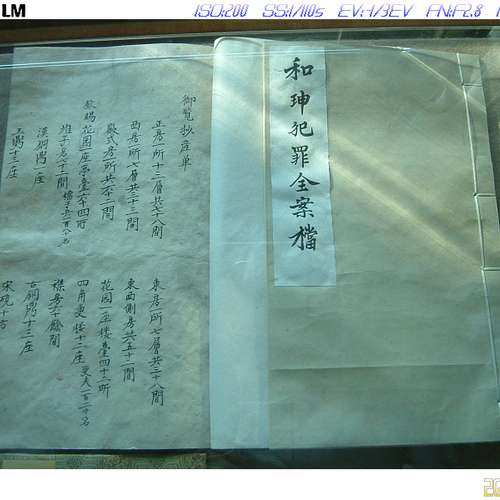 LM
ISO:200 SS:1/110s EV:-1/3EV FN:F2.8
和珅犯罪全案檔
御覽抄產單
正房一所十三層共七十八間
東房一所七層共三十八間
西房一所七層共三十三間
東西側房共五十二間
徽式房一所共六十二間
花园一座楼臺四十二所
欽賜花园一座亭臺六十四所
四角更楼十二座更夫一百二十名
堆子房七十二間檔子兵一百八十名
襍房六十餘間
漢銅鼎一座
古銅鼎十三座
玉鼎十三座
宋硯十方